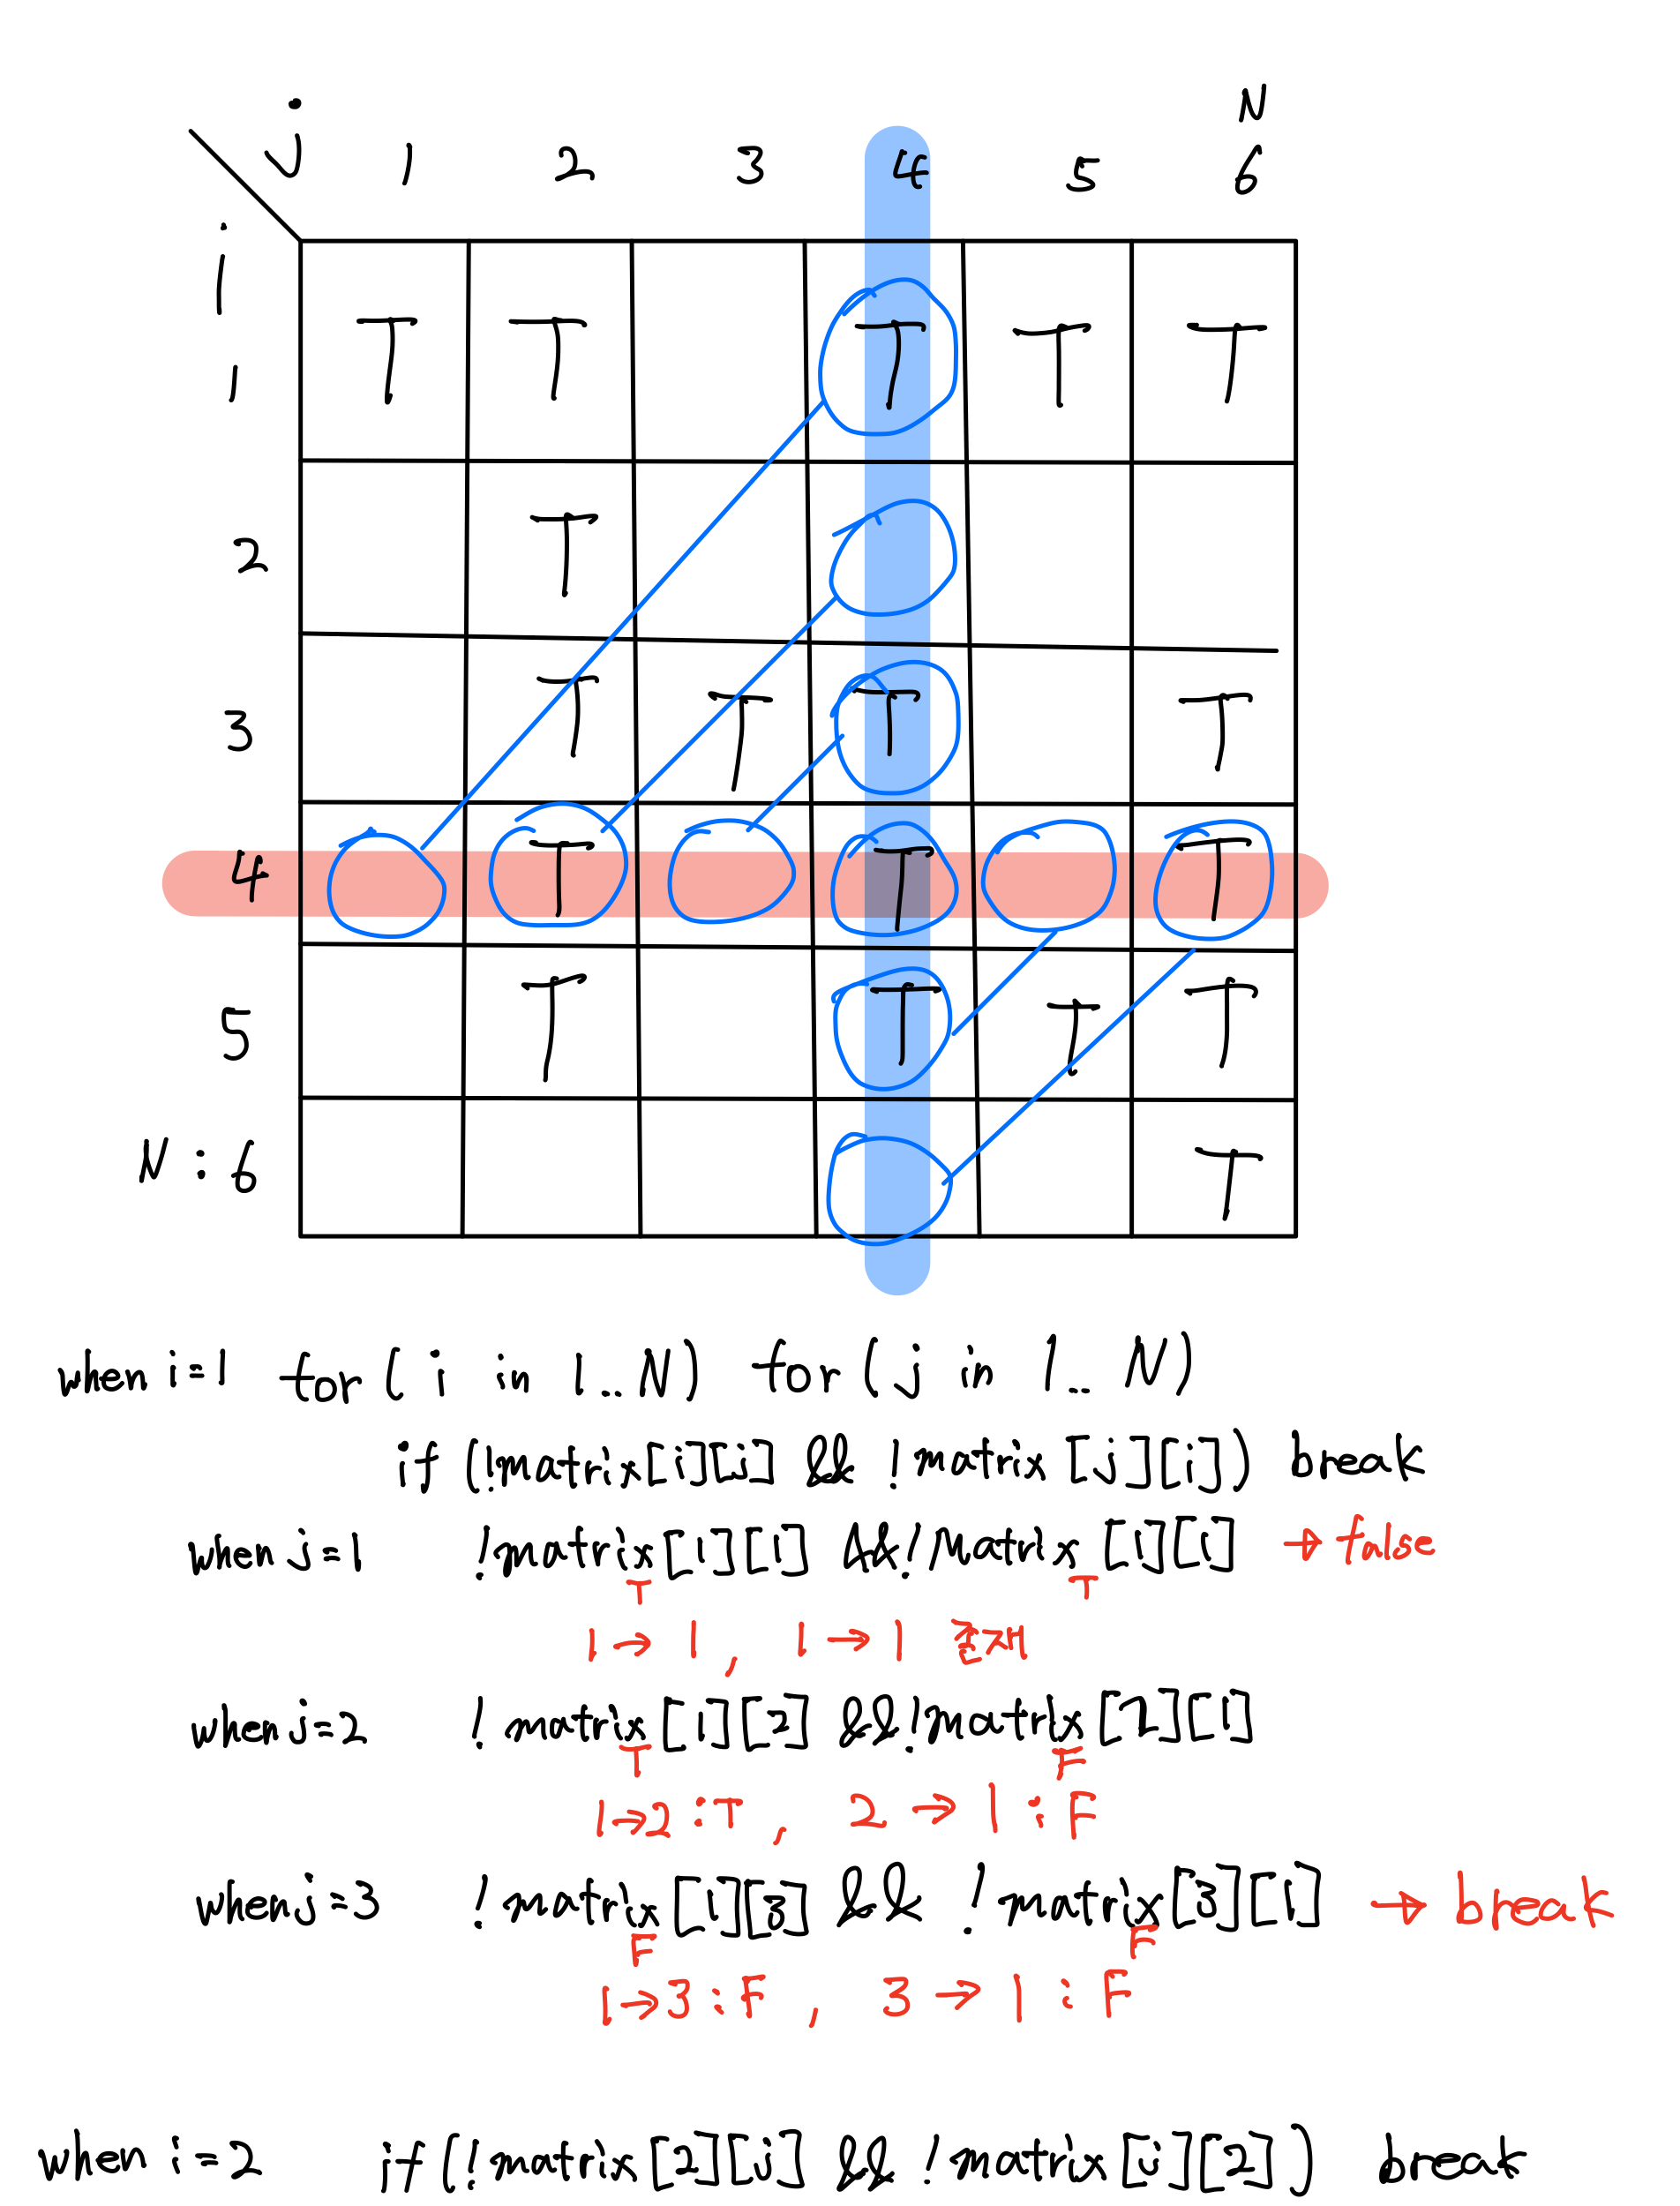 N
j 1 2 3 4 5 6
i
1 T T T T T
2 T
3 T T T T
4 T T T
5 T T T T
N : 6 T
when i=1 for ( i in 1..N) for (j in 1.. N)
if (!matrix[i][j] && !matrix [j][i]) break
when j=1 !matrix[1][1] && !matrix [1][1] → false
T T
1→1 , 1→1 존재
when j=2 !matrix[1][2] && !matrix [2][1]
T F
1→2 :T , 2→1 : F
when j=3 !matrix [1][3] && !matrix[3][1] → break
F F
1→3 :F , 3→1 : F
when i=2 if(!matrix[2][j] && !matrix[j][2]) break